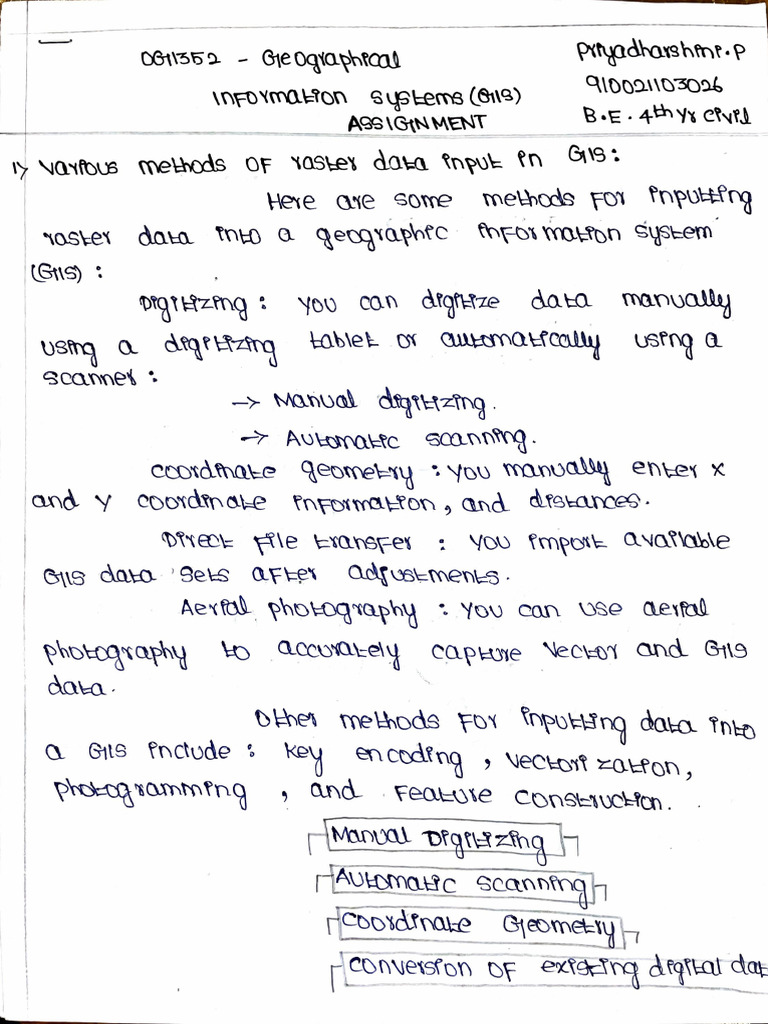 OGI352 - Geographical
Information Systems (GIS)
ASSIGNMENT
Priyadharshini.P
910021103026
B.E. 4th Yr Civil
1) Various methods of raster data input in GIS:
Here are some methods for inputting
raster data into a geographic information system
(GIS) :
Digitizing : You can digitize data manually
using a digitizing tablet or automatically using a
scanner :
→ Manual digitizing.
→ Automatic scanning.
Coordinate geometry : You manually enter x
and y coordinate information, and distances.
Direct file transfer : You import available
GIS data sets after adjustments.
Aerial photography : You can use aerial
photography to accurately capture vector and GIS
data.
Other methods for inputting data into
a GIS include : key encoding, vectorization,
photogramming, and feature construction.
Manual Digitizing
Automatic scanning
Coordinate Geometry
Conversion of existing digital dat